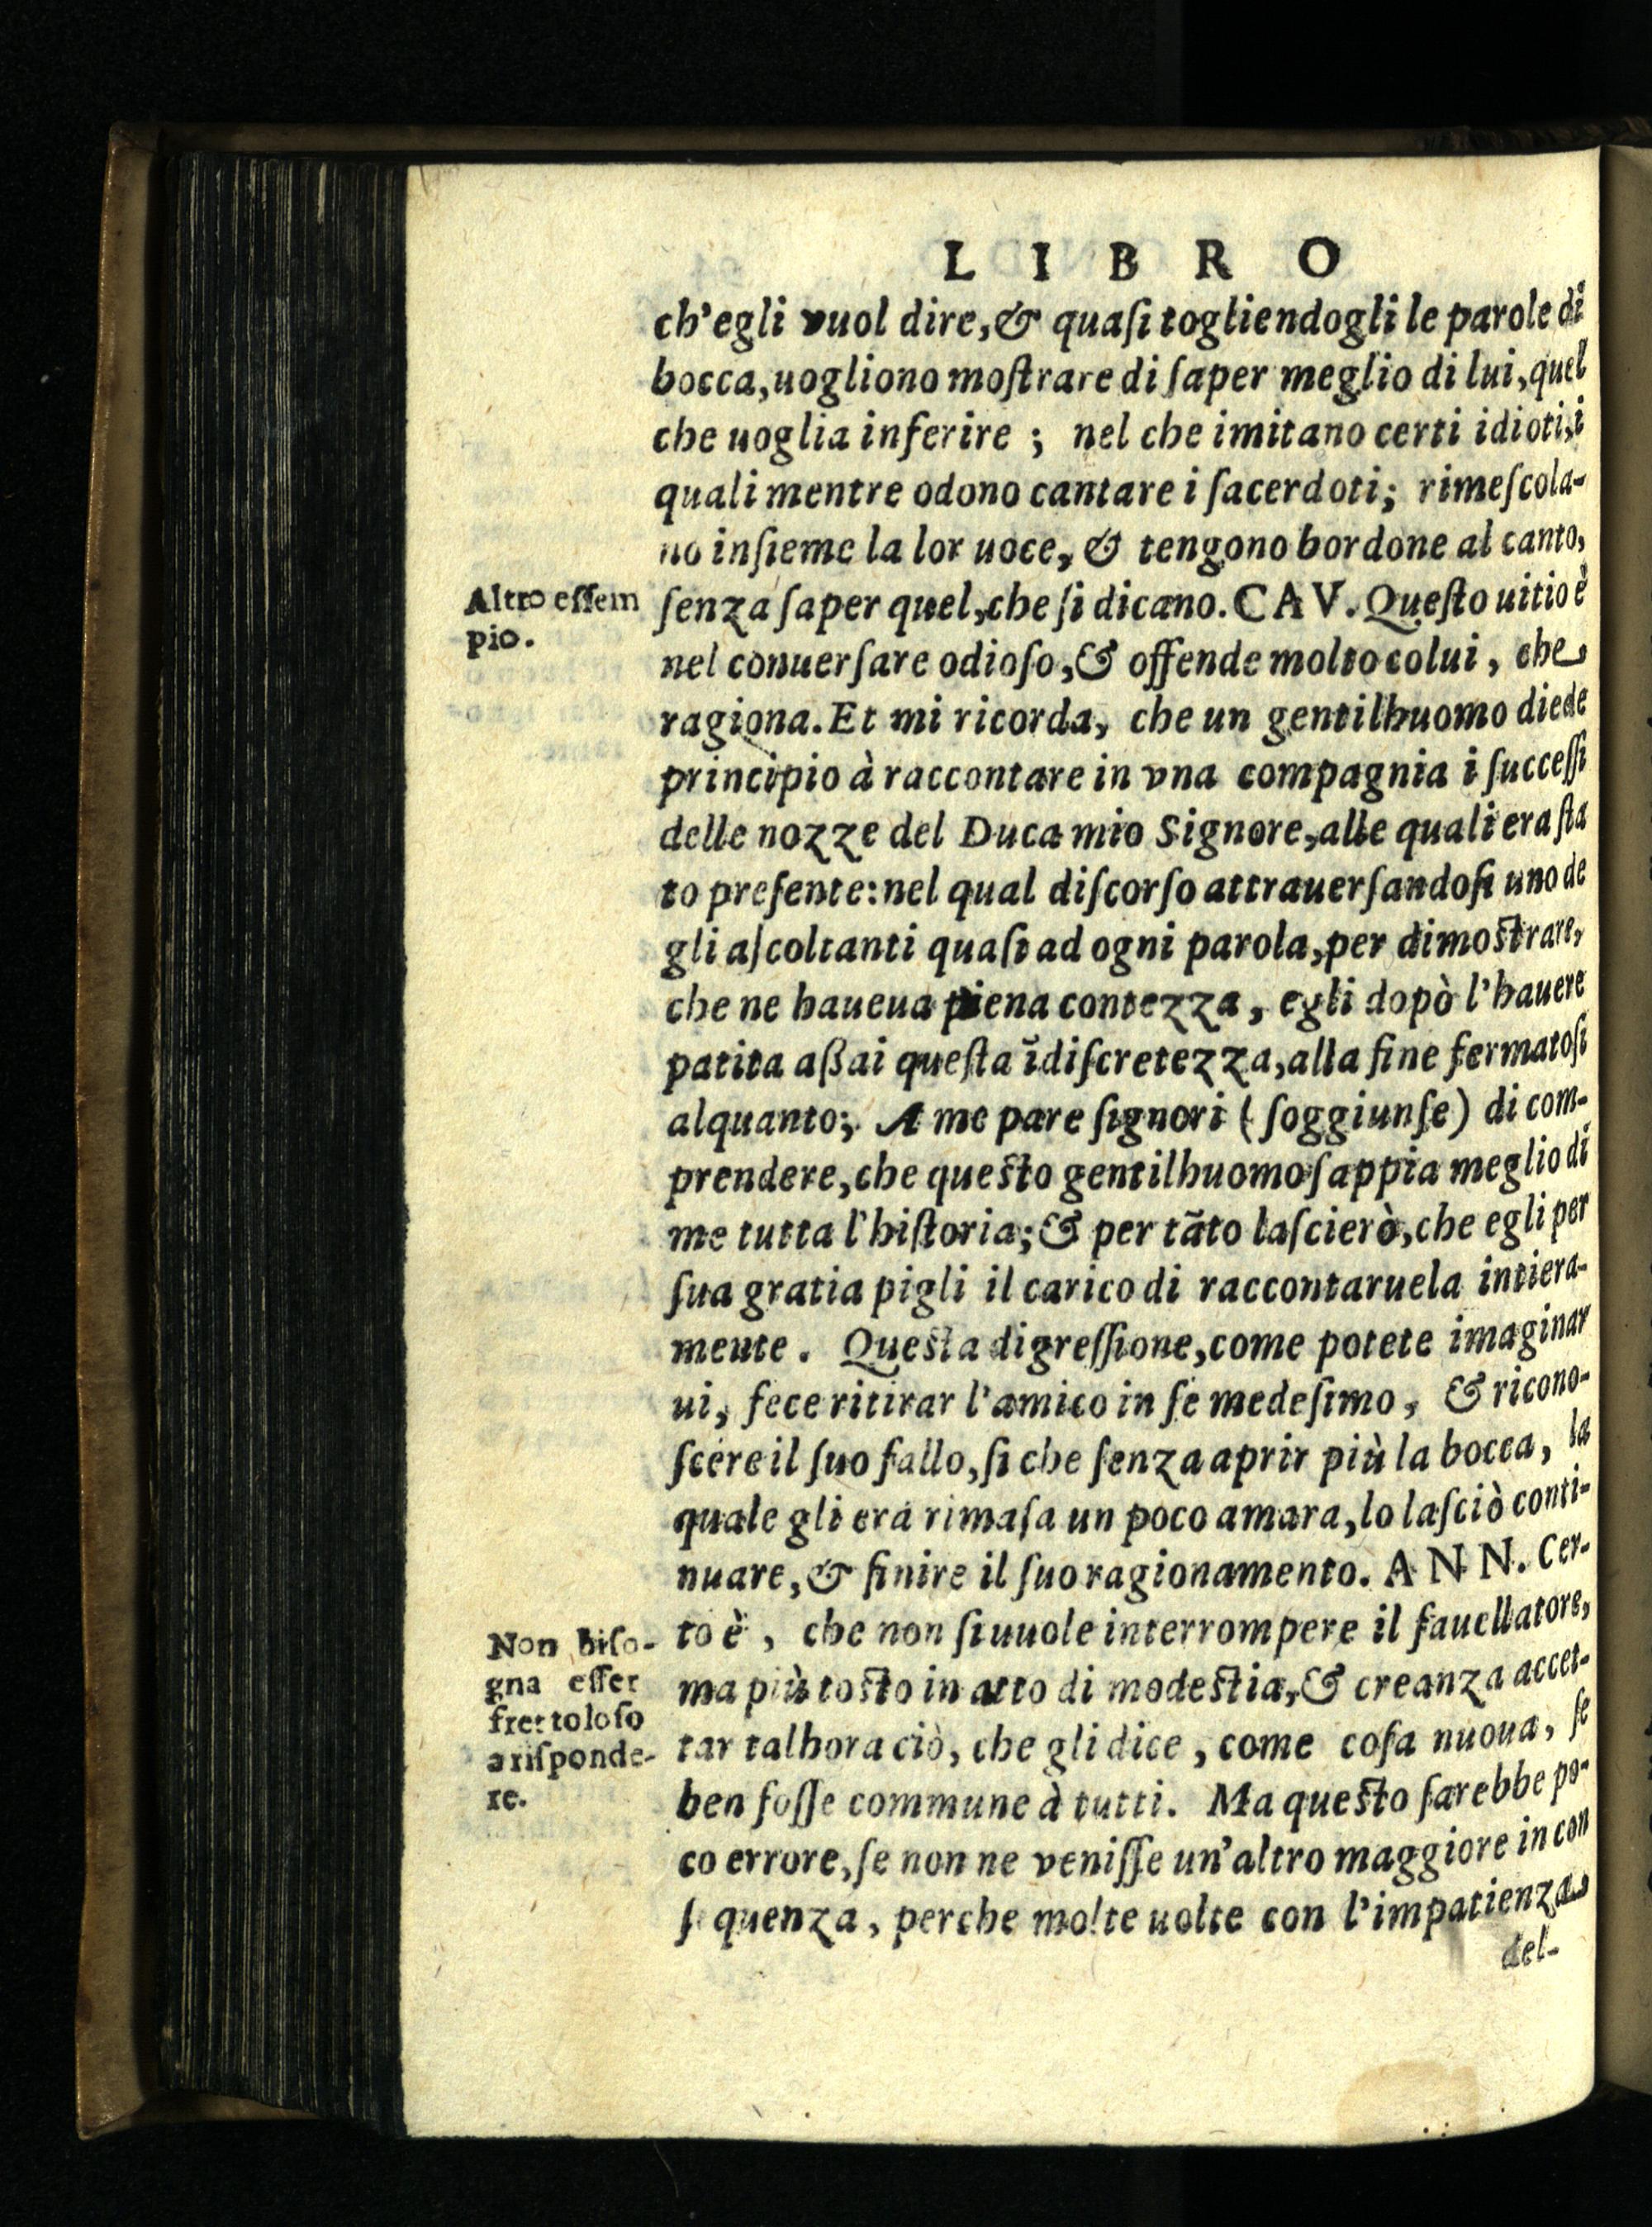 LIBRO
ch'egli vuol dire, & quaſi togliendogli le parole di
bocca, uogliono moſtrare di ſaper meglio di lui, quel
che uoglia inferire ; nel che imitano certi idioti, i
quali mentre odono cantare i ſacerdoti; rimeſcola-
no inſieme la lor uoce, & tengono bordone al canto,
Altro eſſem
pio.
ſenza ſaper quel, che ſi dicano. CAV. Queſto uitio è
nel conuerſare odioſo, & offende molto colui, che
ragiona. Et mi ricorda, che un gentilhuomo diede
principio à raccontare in vna compagnia i ſucceſſi
delle nozze del Duca mio Signore, alle quali era ſta
to preſente: nel qual diſcorſo attrauerſandoſi uno de
gli aſcoltanti quaſi ad ogni parola, per dimoſtrare,
che ne haueua piena contezza, egli dopò l'hauere
patita aßai queſta ĩdiſcretezza, alla fine fermatoſi
alquanto; A me pare ſignori (ſoggiunſe) di com-
prendere, che queſto gentilhuomo ſappia meglio di
me tutta l'hiſtoria; & per tãto laſcierò, che egli per
ſua gratia pigli il carico di raccontaruela intiera-
mente. Queſta digreſſione, come potete imaginar
ui, fece ritirar l'amico in ſe medeſimo, & ricono-
ſcere il ſuo fallo, ſi che ſenza aprir più la bocca, la
quale gli era rimaſa un poco amara, lo laſciò conti-
nuare, & finire il ſuo ragionamento. ANN. Cer-
Non biſo-
gna eſſer
frettoloſo
a riſponde-
re.
to è, che non ſi uuole interrompere il fauellatore,
ma più toſto in atto di modeſtia, & creanza accet-
tar talhora ciò, che gli dice, come coſa nuoua, ſe
ben foſſe commune à tutti. Ma queſto ſarebbe po-
co errore, ſe non ne veniſſe un'altro maggiore in con
ſequenza, perche molte uolte con l'impatienza
del-